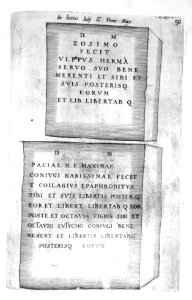 In hortis Julij III. Pont. Max.
91
D M
ZOSIMO
FECIT
VLPIVS HERMA
SERVO SVO BENE
MERENTI ET SIBI ET
SVIS POSTERISQ
EORVM
ET LIB LIBERTAB Q
D M
PACIAE N F MAXIMAE
CONIVGI KARISSIMAE FECIT
T COILAGIVS EPAPHRODITVS
SIBI ET SVIS LIBERTIS POSTER Q
EOR ET LIBERT LIBERTAB Q EOR
PONTE ET OCTAVIA TIGRIS SIBI ET
OCTAVIO EVTYCHO CONIVGI BENE
MERENT ET LIBERTIS LIBERTABQ
POSTERISQ EORVM